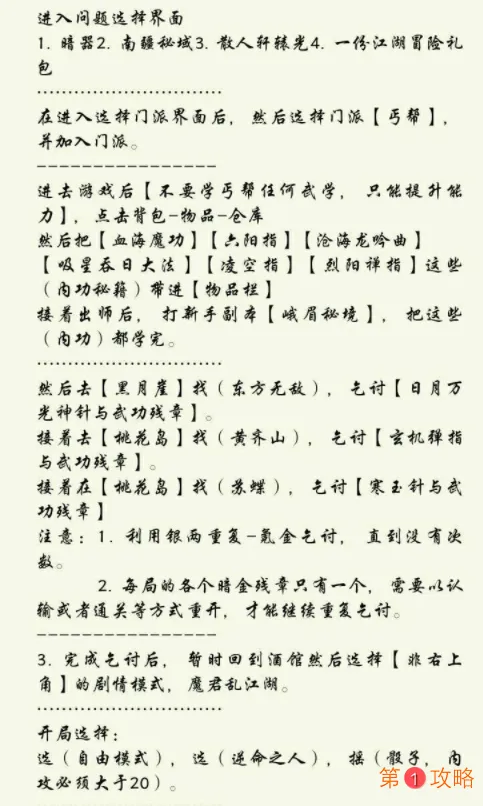 进入问题选择界面
1. 暗器2. 南疆秘域3. 散人轩辕光4. 一份江湖冒险礼
包
······························
在进入选择门派界面后, 然后选择门派【丐帮】,
并加入门派。
-----------------
进去游戏后【不要学丐帮任何武学, 只能提升能
力】, 点击背包-物品-仓库
然后把【血海魔功】【六阳指】【沧海龙吟曲】
【吸星吞日大法】【凌空指】【烈阳禅指】这些
(内功秘籍)带进【物品栏】
接着出师后, 打新手副本【峨眉秘境】, 把这些
(内功)都学完。
······························
然后去【黑月崖】找(东方无敌), 乞讨【日月万
光神针与武功残章】。
接着去【桃花岛】找(黄齐山), 乞讨【玄机弹指
与武功残章】。
接着在【桃花岛】找(苏蝶), 乞讨【寒玉针与武
功残章】
注意: 1. 利用银两重复-氪金乞讨, 直到没有次
数。
2. 每局的各个暗金残章只有一个, 需要以认
输或者通关等方式重开, 才能继续重复乞讨。
-----------------
3. 完成乞讨后, 暂时回到酒馆然后选择【非右上
角】的剧情模式, 魔君乱江湖。
······························
开局选择:
选(自由模式), 选(逆命之人), 摇(骰子, 内
攻必须大于20)。
第1攻略
-----------------